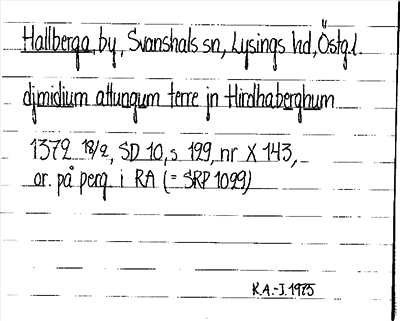 Hallberga, by, Svanshals sn, Lysings hd, Östg.l.
djmidium attungum terre jn Hirdhaberghum
1372 18/2, SD 10, s 129, nr X 143,
or. på perg. i RA (= SRP 1099)
K.A.-J. 1975